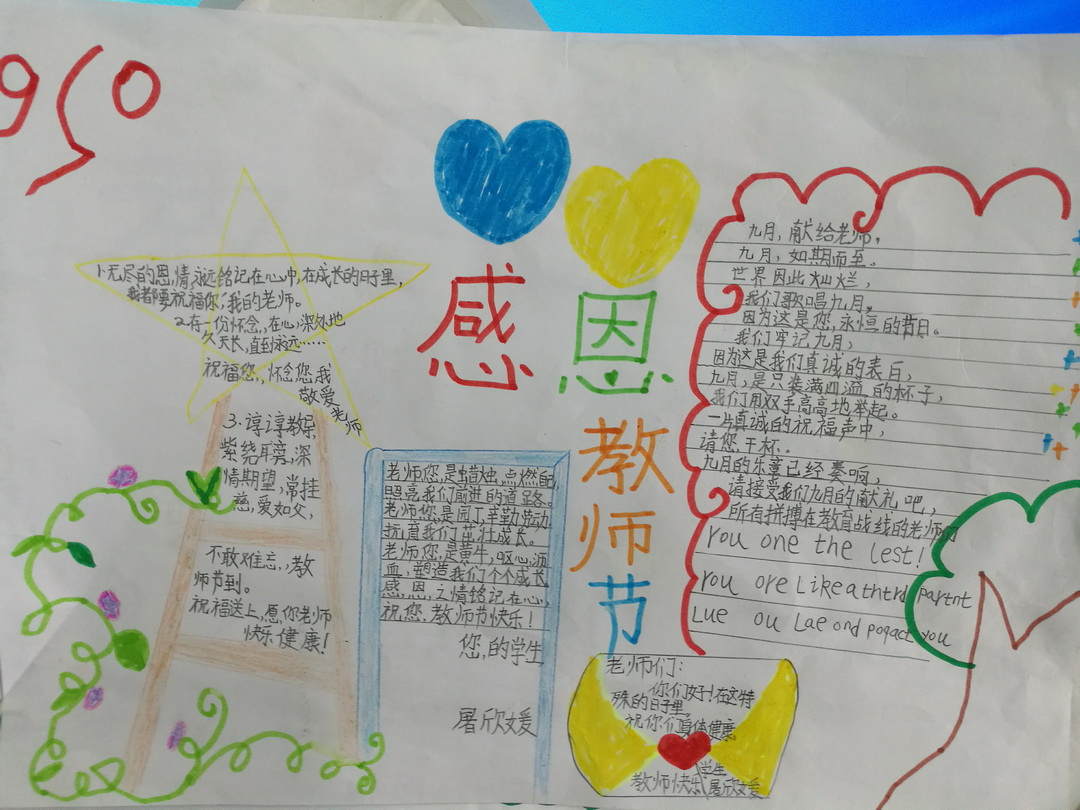 感恩
教师节
1.无尽的恩情,永远铭记在心中,在成长的日子里,
我都要祝福你,我的老师。
2.在一份怀念,在心,深处地
久天长,直到永远……
祝福您,怀念您,我
敬爱
老师
3.谆谆教导,
紫绕耳旁,深
情期望,常挂
慈,爱如父,
不敢难忘,教
师节到。
祝福送上,愿你老师
快乐健康!
老师您是蜡烛,点燃自
照亮我们前进的道路。
老师您是园丁,辛勤劳动,
抚育我们茁壮成长。
老师您,是黄牛,呕心,沥
血,塑造我们个个成长
感,恩,之情铭记在心,
祝您,教师节快乐!
您,的学生
屠欣媛
九月,献给老师,
九月,如期而至。
世界因此灿烂,
我们歌唱九月,
因为这是您,永恒的昔日。
我们牢记九月,
因为这是我们真诚的表白,
九月,是只装满四溢的杯子,
我们用双手高高地举起。
一片真诚的祝福声中,
请您,干杯。
九月的乐章已经奏响,
请接受我们九月的献礼吧,
所有拼搏在教育战线的老师们
You one the lest!
You ore Like a thtrd partnt
Lue ou Lae ond poqact you
老师们:
你们好!在这特
殊的日子里,
祝你们身体健康
教师快乐
学生
屠欣媛